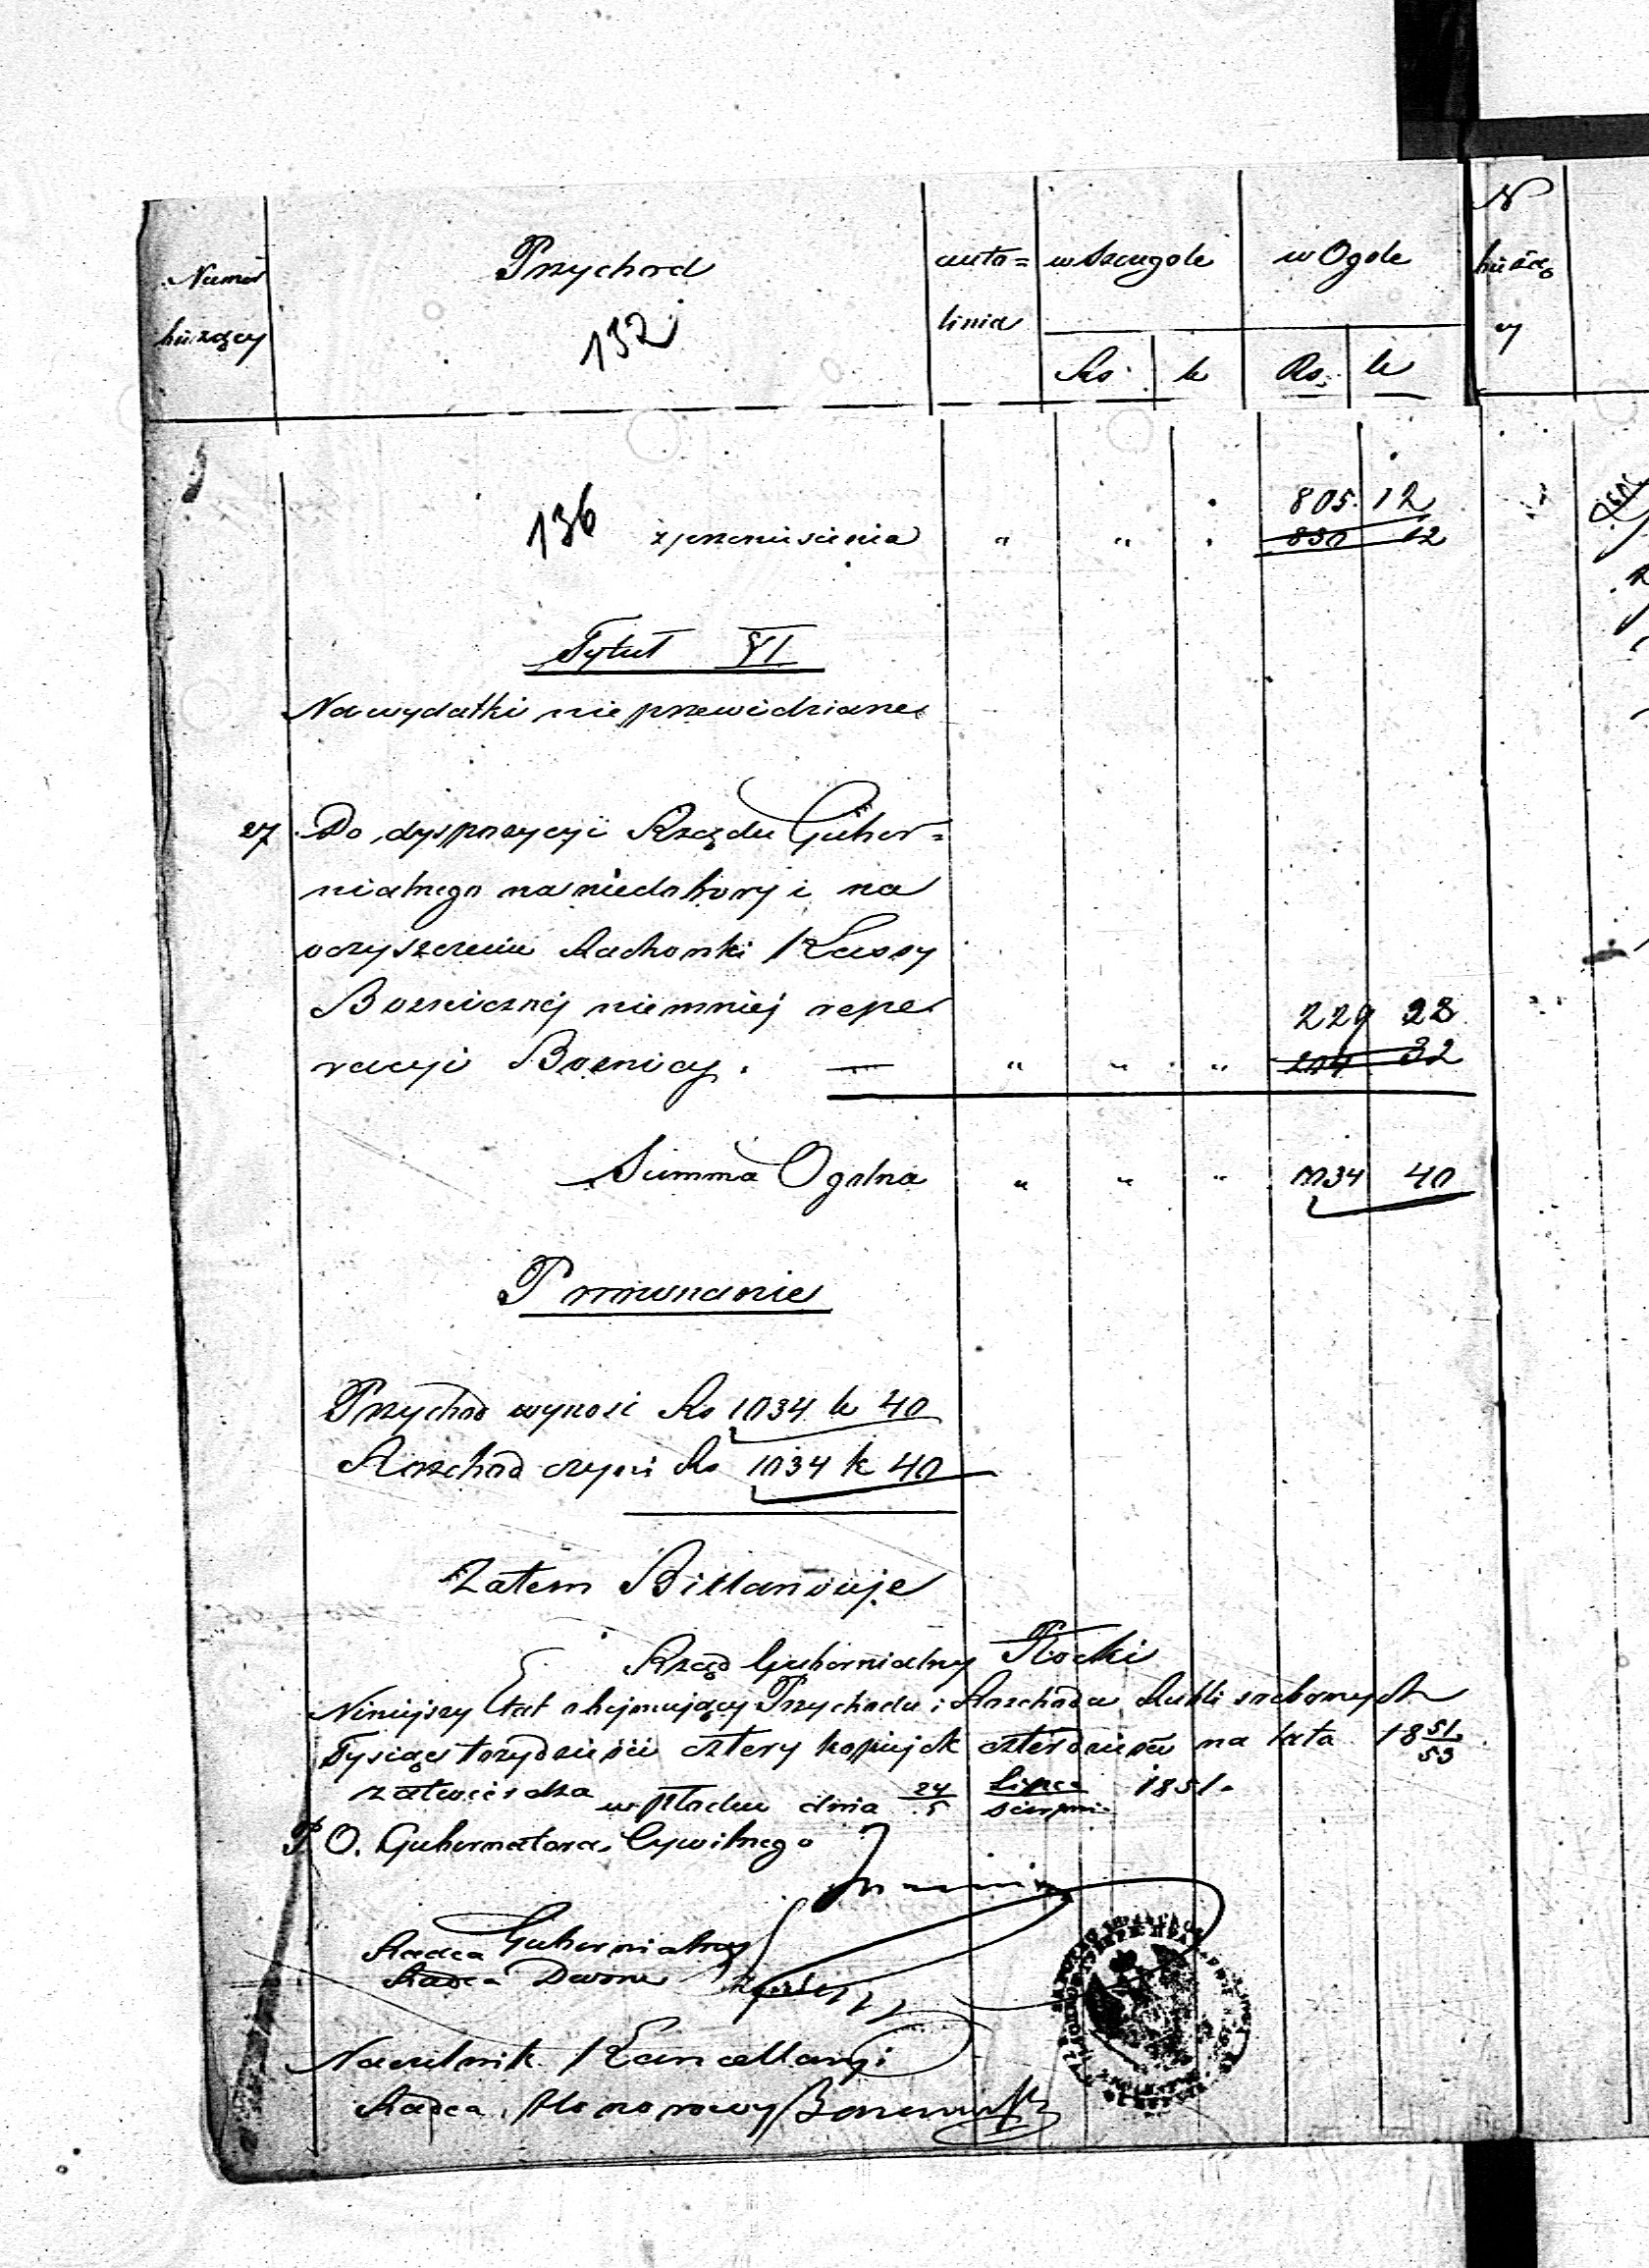 Numer bieżący
Przychod
auto=
linia
w Szczegole
w Ogole
Rs k Rs k
132
N
bieżąc
y
805. 12
136 z przeniesienia " " " 830 12
Tytuł VI
Na wydatki nieprzewidziane
27. Do dyspozycyi Rządu Guber=
nialnego na niedobory i na
oczyszczenie Rachonki Kassy
Boznicznej niemniej repe
229 28
racyi Boznicy. — " " " 204 32
Summa Ogolna " " " 1034 40
Porownanie
Przychod wynosi Rs 1034 k 40
Rozchod czyni Rs 1034 k 40
Zatem Billansuje
Rząd Gubernialny Płocki
Niniejszy Etat obejmujący Przychodu i Rozchodu Rubli srebrnych
Tysiąc trzydzieści cztery kopiejek czterdzieści na lata 18 51/53
zatwierdza w Płocku dnia 24/5 Lipca/Sierpnia 1851.
P. O. Gubernatora Cywilnego
Radca Gubernialny
Radca Dworu
Naczelnik Kancellaryi
Radca Honorowy